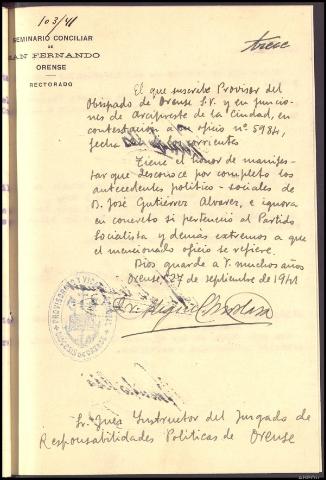 103/41
trece
SEMINARIO CONCILIAR
DE
SAN FERNANDO
ORENSE
RECTORADO
El que suscribe Provisor del
Obispado de Orense S.V. y en funcio-
nes de Arcipreste de la Ciudad, en
contestación a su oficio nº 5984,
fecha del corrientes
Tiene el honor de manifes-
tar que desconoce por completo los
antecedentes político-sociales de
D. José Gutiérrez Alvarez, e ignora
en concreto si perteneció al Partido
Socialista y demás extremos a que
el mencionado oficio se refiere.
Dios guarde a V. muchos años
Orense 27 de septiembre de 1941
Dr. Miguel
Sr. Juez Instructor del Juzgado de
Responsabilidades Políticas de Orense